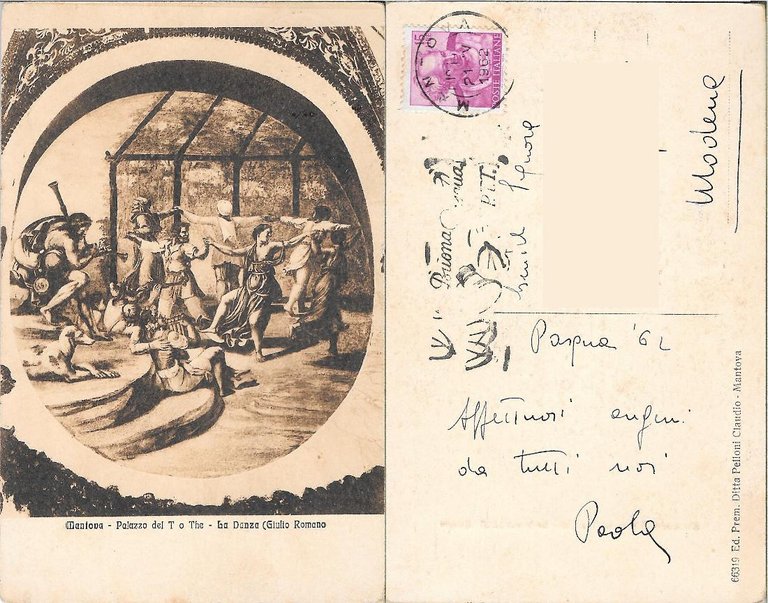 Mantova - Palazzo del T o The - La Danza (Giulio Romano
POSTE ITALIANE
21 - IV
1962
Buona
P.T.T.
Signora
Modena
Pasqua '62
Affettuosi auguri
da tutti noi
Paola
66319 Ed. Prem. Ditta Pelloni Claudio - Mantova